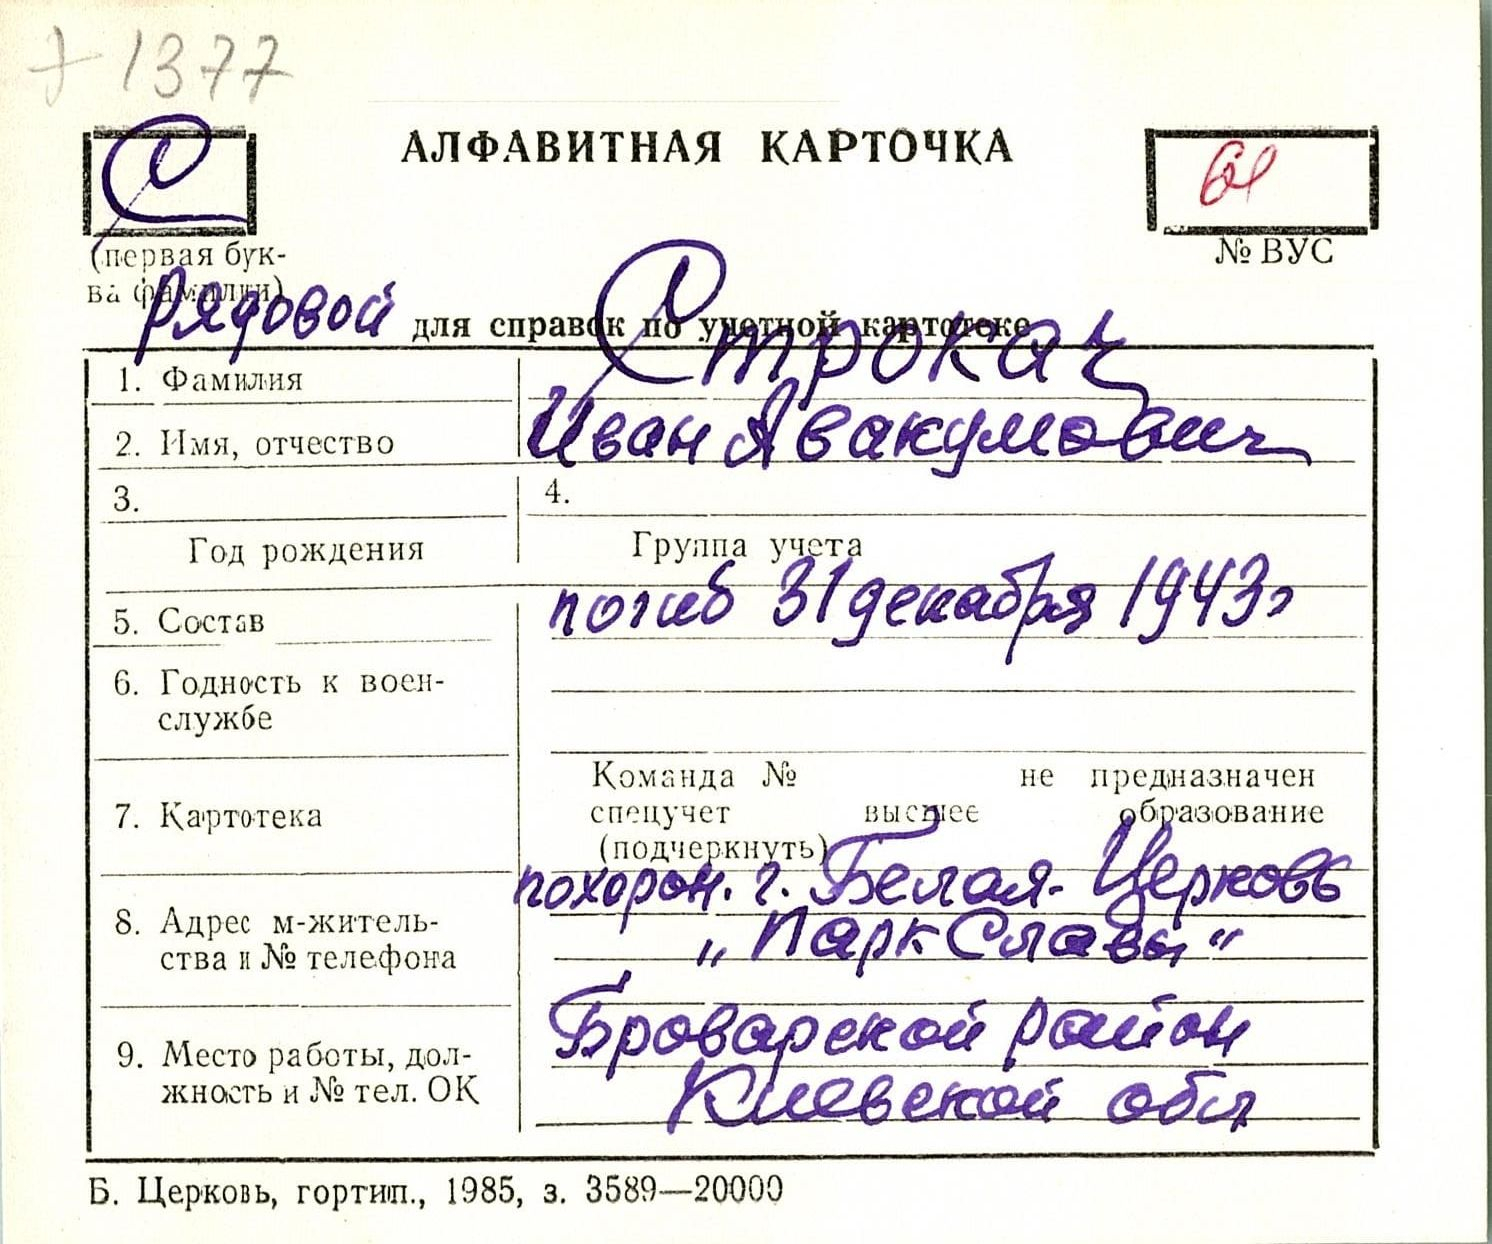 1377
С
АЛФАВИТНАЯ КАРТОЧКА
(первая бук-
ва фамилии)
№ ВУС
Рядовой
для справок по учетной картотеке
1. Фамилия
Строкач
2. Имя, отчество
Иван Авакумович
3.
4.
Год рождения
Группа учета
5. Состав
погиб 31 декабря 1943г
6. Годность к воен-
службе
Команда № не предназначен
7. Картотека
спецучет высшее образование
(подчеркнуть)
похорон. г. Белая-Церковь
8. Адрес м-житель-
ства и № телефона
„Парк Славы“
Броварской район
9. Место работы, дол-
жность и № тел. ОК
Киевской обл
Б. Церковь, гортип., 1985, з. 3589—20000